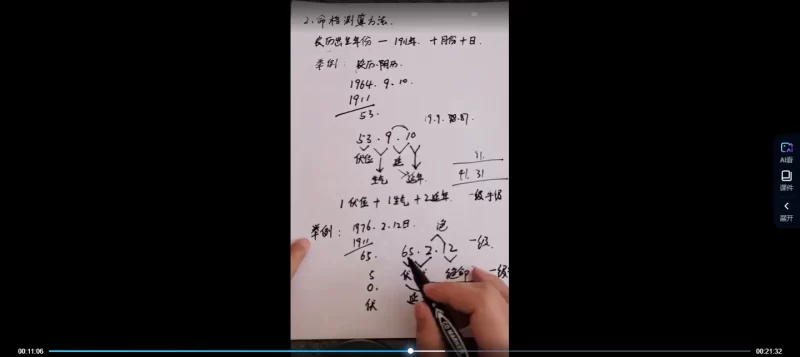 2、命格测算方法.
农历出生年份 — 1911年. 十月份十日.
举例: 农历.阴历.
1964. 9. 10.
1911
53.
19.9.
53. 9. 10
伏位 延
生气 延年
41. 31
1伏位 + 1生气 + 2延年. 一级
举例: 1976. 2. 12日.
1911
65. 65. 2. 12 一级.
5 伏 绝命 一级
0. 延
伏
AI看
课件
展开
00:11:06
00:21:32